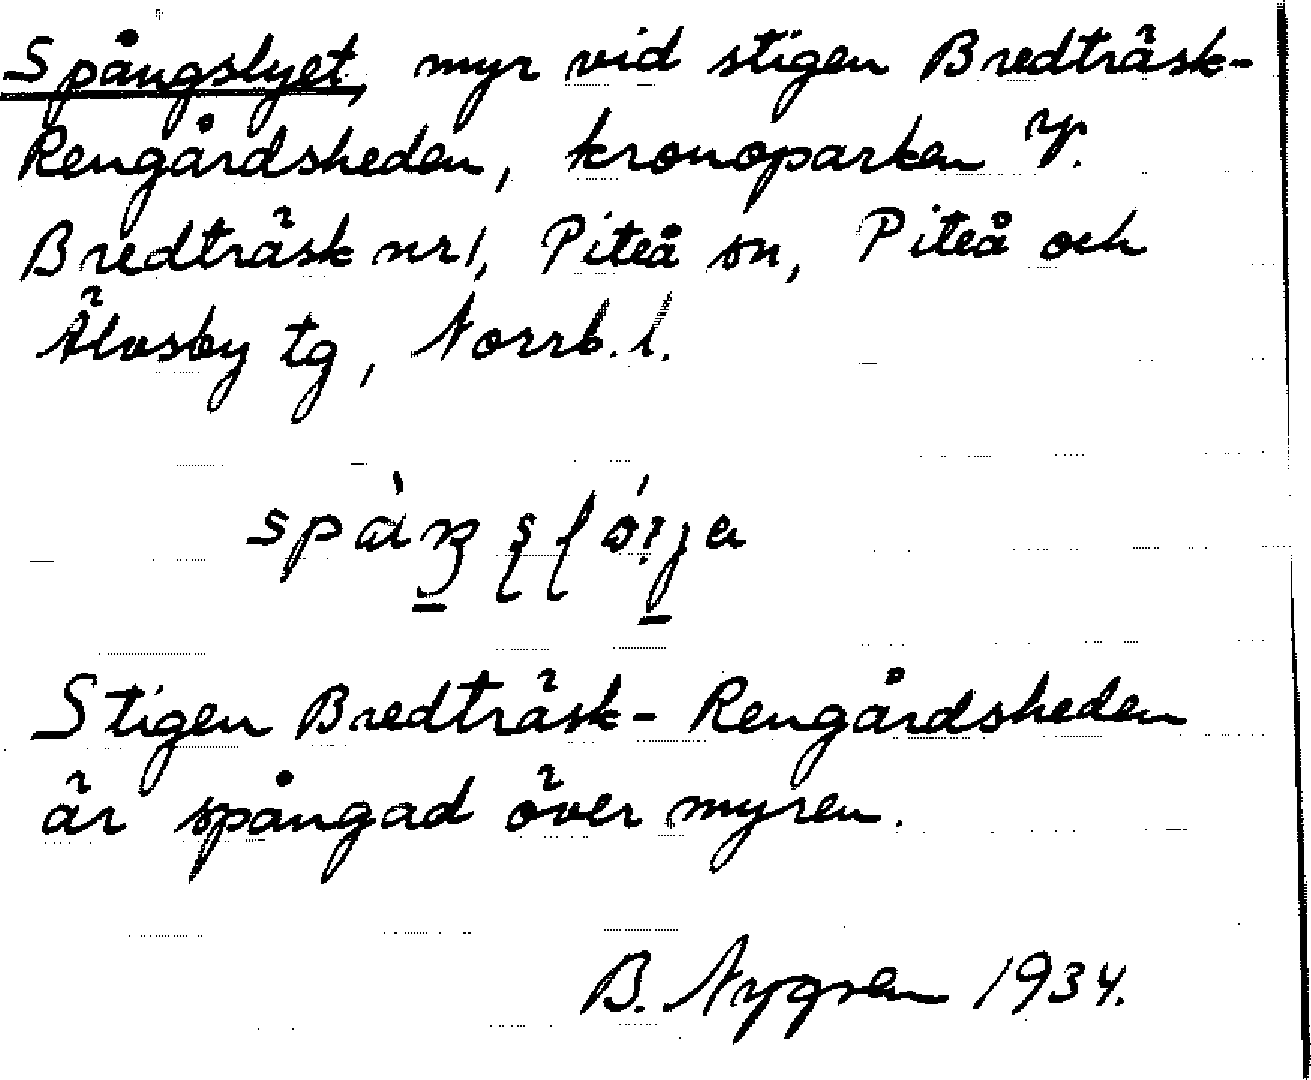 Spångslyet, myr vid stigen Bredträsk-
Rengårdsheden, kronoparken V.
Bredträsk nr 1, Piteå sn, Piteå och
Älvsby tg, Norrb. l.
Stigen Bredträsk - Rengårdsheden
är spångad över myren.
B. Nygren 1934.